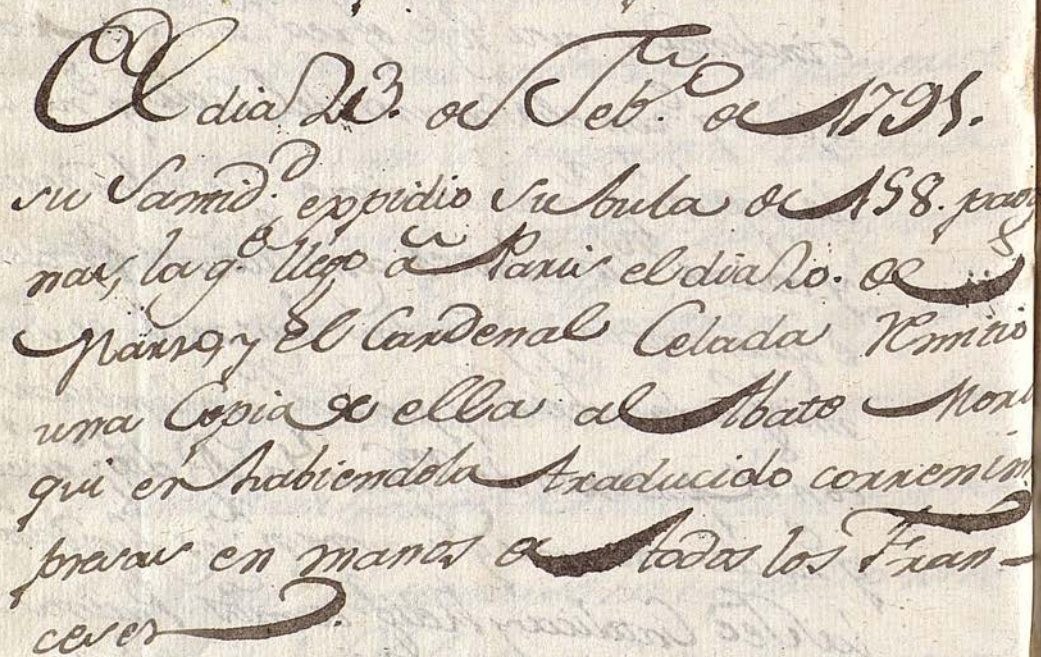 El dia 23. de Feb.º de 1791.
su Santid.d expidio su bula de 158. pagi
nas, la q.e llego a Paris el dia 20. de
Marzo, y el Cardenal Celada Remitio
una Copia de ella al Abate
quien habiendola traducido corren im
presas en manos de todos los Fran-
ceses.